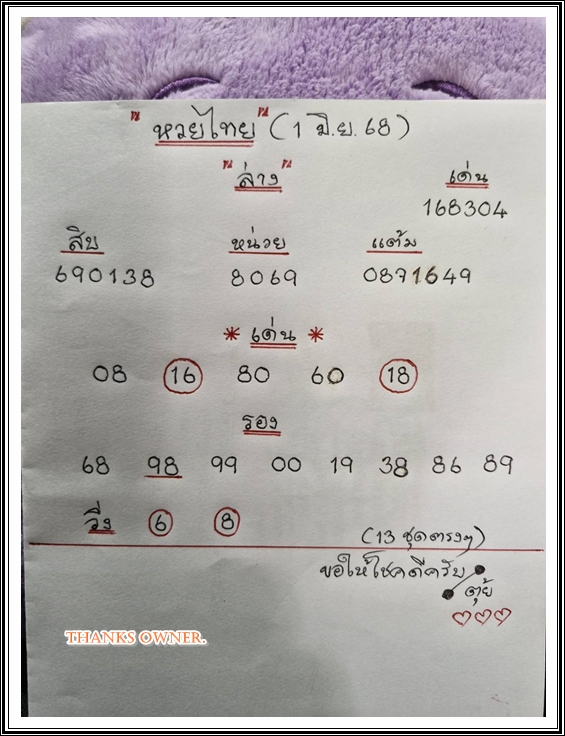 " หวยไทย " (1 มิ.ย. 68)
" ล่าง "
เด่น
168304
สิบ หน่วย แต้ม
690138 8069 0871649
* เด่น *
08 16 80 60 18
รอง
68 98 99 00 19 38 86 89
วิ่ง 6 8
(13 ชุดตรงๆ)
ขอให้โชคดีครับ
ตุ้ย
THANKS OWNER.